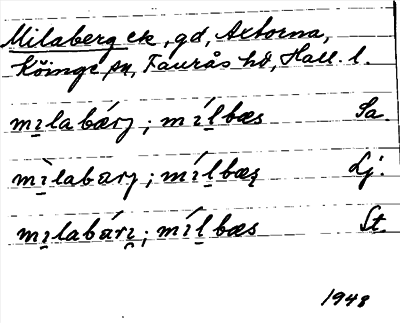 Milaberg ek, gd, Axtorna,
Köinge sn, Faurås hd, Hall. l.
mı̱la bárj ; mı́ḻbæs Sa.
mı̱̀labarj ; mı́ḻbæs Lj.
mı̱labárı̱ ; mı́ḻbæs St.
1948